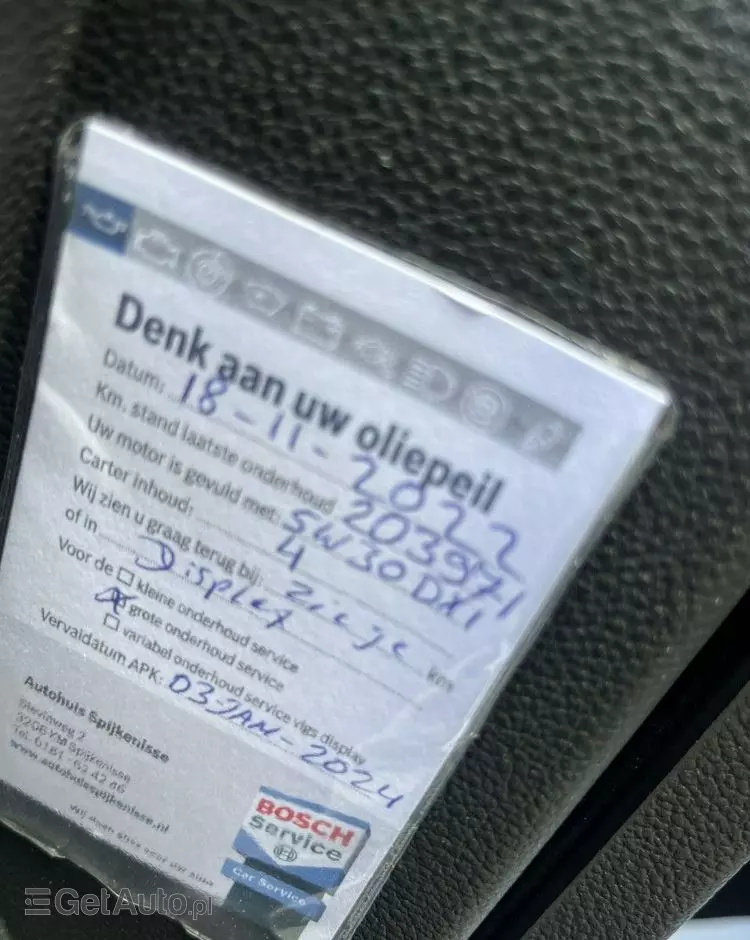 Denk aan uw oliepeil
Datum: 18-11-2022
Km. stand laatste onderhoud 203971
Uw motor is gevuld met: 5W30 DX1
Carter inhoud: 4
Wij zien u graag terug bij: ziege km
of in Display
Voor de □ kleine onderhoud service
☒ grote onderhoud service
□ variabel onderhoud service vlgs display
Vervaldatum APK: 03-JAN-2024
Autohuis Spijkenisse
3208 KM Spijkenisse
Tel. 0181 - 62 42 86
www.autohuisspijkenisse.nl
BOSCH
Service
Car Service
GetAuto.pl